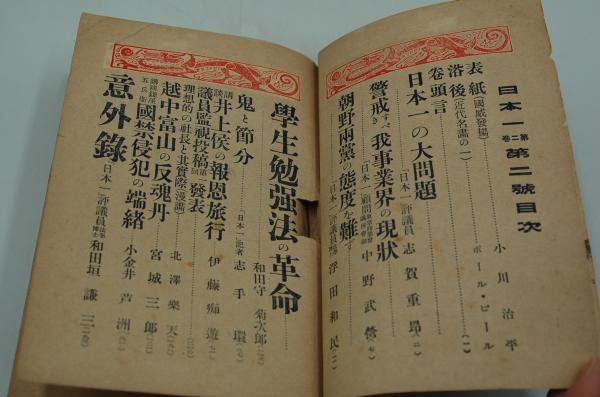 日本一 第二卷 第二號目次
表紙（國威發揚） 小川治平
落後（近代名畫の一） ポール・ピール（一）
卷頭言
日本一の大問題 「日本一」評議員 志賀重昂
警戒すべき我事業界の現狀 「日本一」顧問 中野武營
朝野兩黨の態度を難ず 「日本一」評議員 浮田和民
學生勉强法の革命 和田守菊次郎
鬼と節分 「日本一」記者 志手環
講談 井上侯の報恩旅行 伊藤痴遊
議員監視投稿第一回發表
理想的の社長と其實際（漫講） 北澤樂天
越中富山の反魂丹 宮城三郎
錢屋五兵衛 國禁侵犯の端緖 小金井芦洲
意外錄 「日本一」評議員 法學博士 和田垣謙三